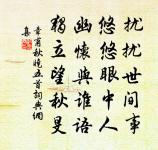 扰扰世间事
悠悠眼中人
幽怀与谁语
独立望秋旻
章甫秋晚五首词典网